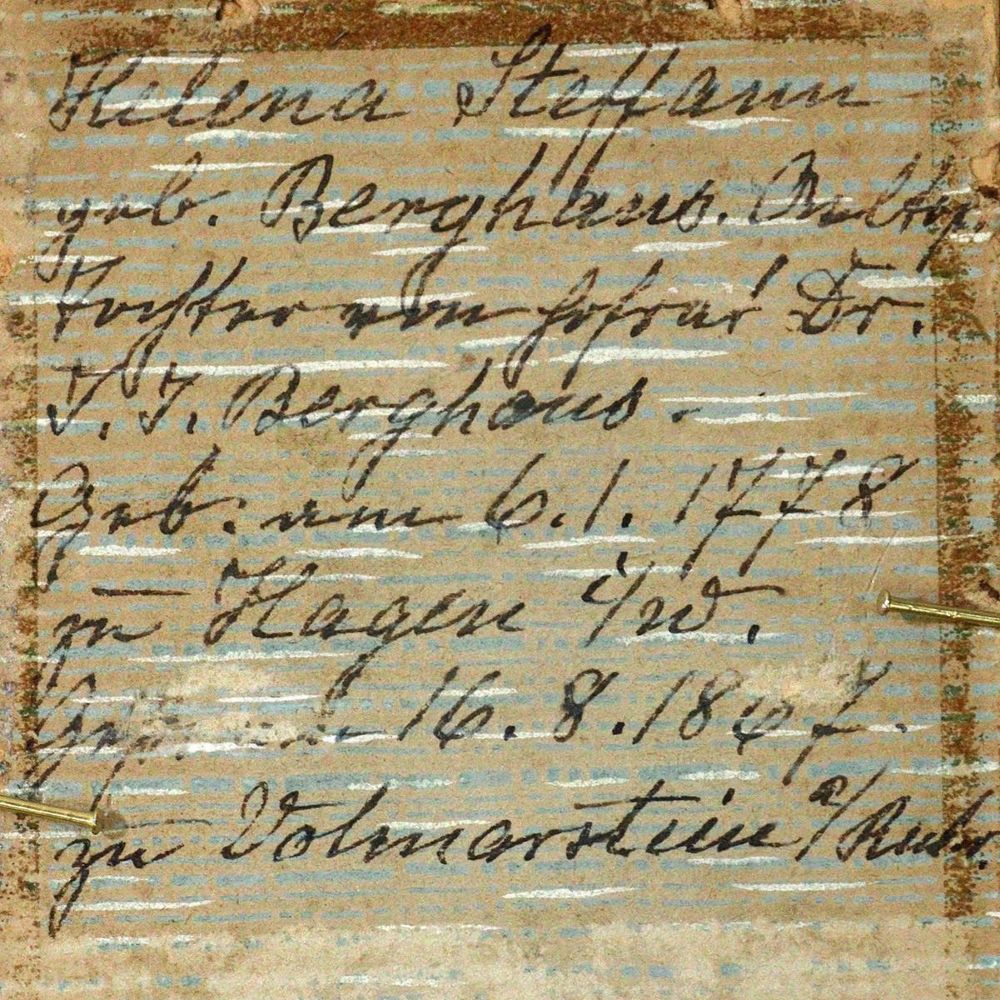 Helena Steffann
geb. Berghaus. Älteste
Tochter von Hofrat Dr.
J. J. Berghaus.
Geb: am 6.1.1778
zu Hagen i/W.
16.8.1847.
zu Volmarstein a/Ruhr.